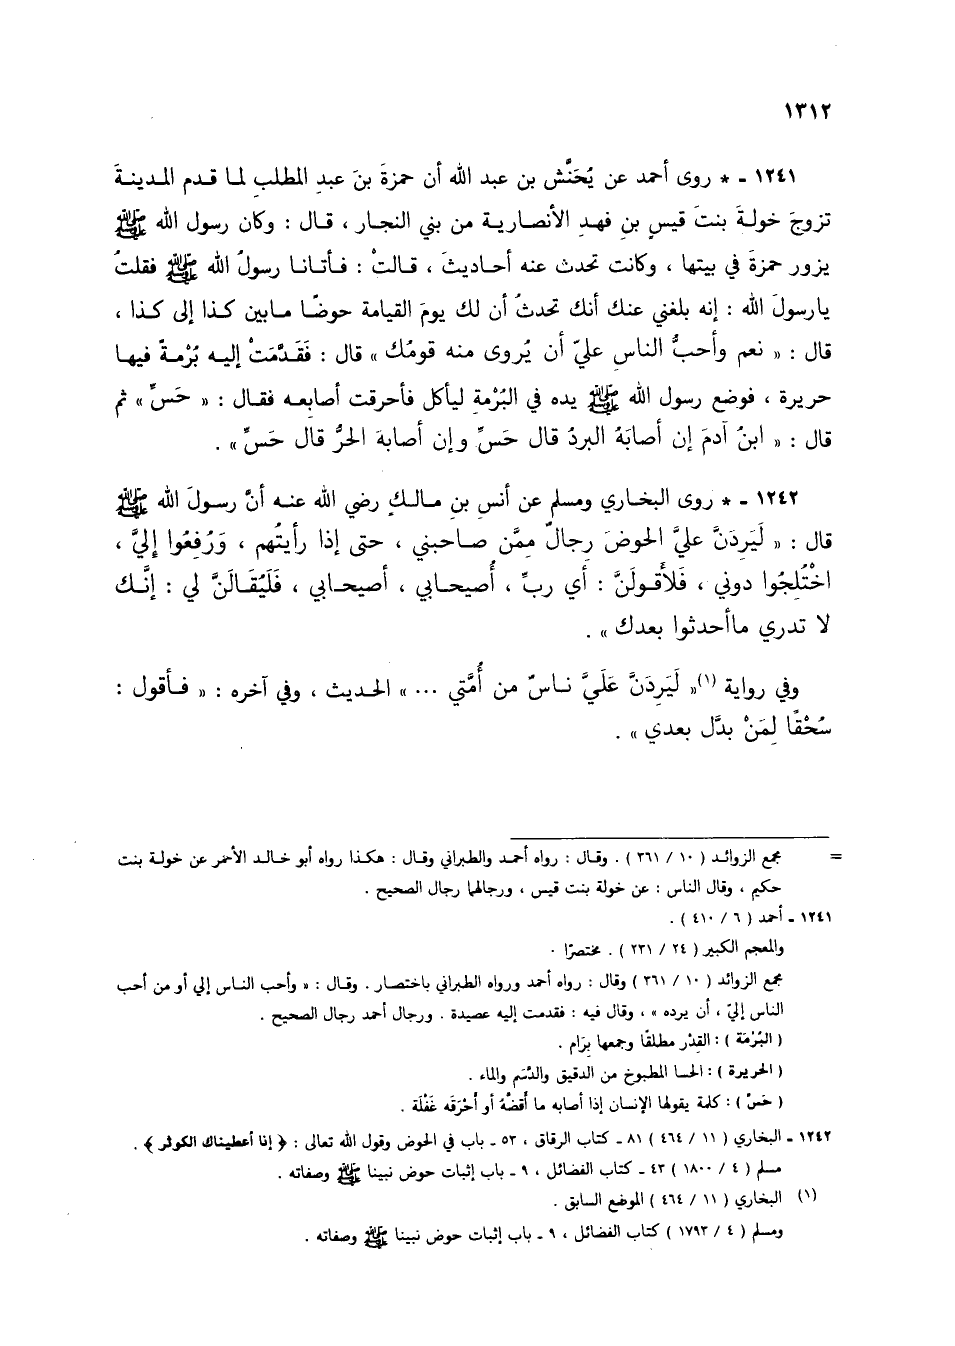 ١٣١٢
١٢٤١ - * روى أحمد عن يُحَنَّش بن عبد الله أن حمزةَ بنَ عبدِ المطلب لما قدم المدينةَ
تزوجَ خولةَ بنتَ قيسٍ بنِ فهدِ الأنصارية من بني النجار ، قال : وكان رسول الله ﷺ
يزور حمزةَ في بيتها ، وكانت تحدث عنه أحاديثَ ، قالتْ : فأتانا رسولُ الله ﷺ فقلتُ
يارسولَ الله : إنه بلغني عنك أنك تحدثُ أن لك يومَ القيامة حوضًا مابين كذا إلى كذا ،
قال : « نعم وأحبُّ الناسِ عليّ أن يُروى منه قومُك » قال : فَقَدَّمَتْ إليه بُرْمةً فيها
حريرة ، فوضع رسول الله ﷺ يده في البُرْمةِ ليأكل فأحرقت أصابعه فقال : « حَسِّ » ثم
قال : « ابنُ آدمَ إن أصابَهُ البردُ قال حَسِّ وإن أصابهَ الحرُّ قال حَسِّ » .
١٢٤٢ - * روى البخاري ومسلم عن أنس بنِ مالكٍ رضي الله عنه أنَّ رسولَ الله ﷺ
قال : « لَيَرِدَنَّ عليَّ الحوضَ رِجالٌ ممَّن صاحبني ، حتى إذا رأيتُهم ، وَرُفِعُوا إليَّ ،
اخْتُلِجُوا دوني ، فَلأَقولَنَّ : أي ربِّ ، أُصيحابي ، أصيحابي ، فَلَيُقَالَنَّ لي : إنَّك
لا تدري ماأحدثوا بعدك » .
وفي رواية (١)« لَيَرِدَنَّ عَلَيَّ ناسٌ من أُمَّتي ... » الحديث ، وفي آخره : « فأقول :
سُحْقًا لِمَنْ بدَّل بعدي » .
= مجمع الزوائد ( ١٠ / ٣٦١ ) . وقال : رواه أحمد والطبراني وقال : هكذا رواه أبو خالد الأحمر عن خولة بنت
حكيم ، وقال الناس : عن خولة بنت قيس ، ورجالهما رجال الصحيح .
١٢٤١ - أحمد ( ٦ / ٤١٠ ) .
والمعجم الكبير ( ٢٤ / ٢٣١ ) . مختصرًا .
مجمع الزوائد ( ١٠ / ٣٦١ ) وقال : رواه أحمد ورواه الطبراني باختصار . وقال : « وأحب الناس إلي أو من أحب
الناس إليّ ، أن يرده » ، وقال فيه : فقدمت إليه عصيدة . ورجال أحمد رجال الصحيح .
( البُرْمَة ) : القِدْر مطلقًا وجمعها بِرَام .
( الحريرة ) : الحسا المطبوخ من الدقيق والدَّسَم والماء .
( حَسّ ) : كلمة يقولها الإنسان إذا أصابه ما أَمَضَّهُ أو أحْرَقَه غَفْلَة .
١٢٤٢ - البخاري ( ١١ / ٤٦٤ ) ٨١ - كتاب الرقاق ، ٥٣ - باب في الحوض وقول الله تعالى : ﴿ إنا أعطيناك الكوثر ﴾ .
مسلم ( ٤ / ١٨٠٠ ) ٤٣ - كتاب الفضائل ، ٩ - باب إثبات حوض نبينا ﷺ وصفاته .
(١) البخاري ( ١١ / ٤٦٤ ) الموضع السابق .
ومسلم ( ٤ / ١٧٩٣ ) كتاب الفضائل ، ٩ - باب إثبات حوض نبينا ﷺ وصفاته .